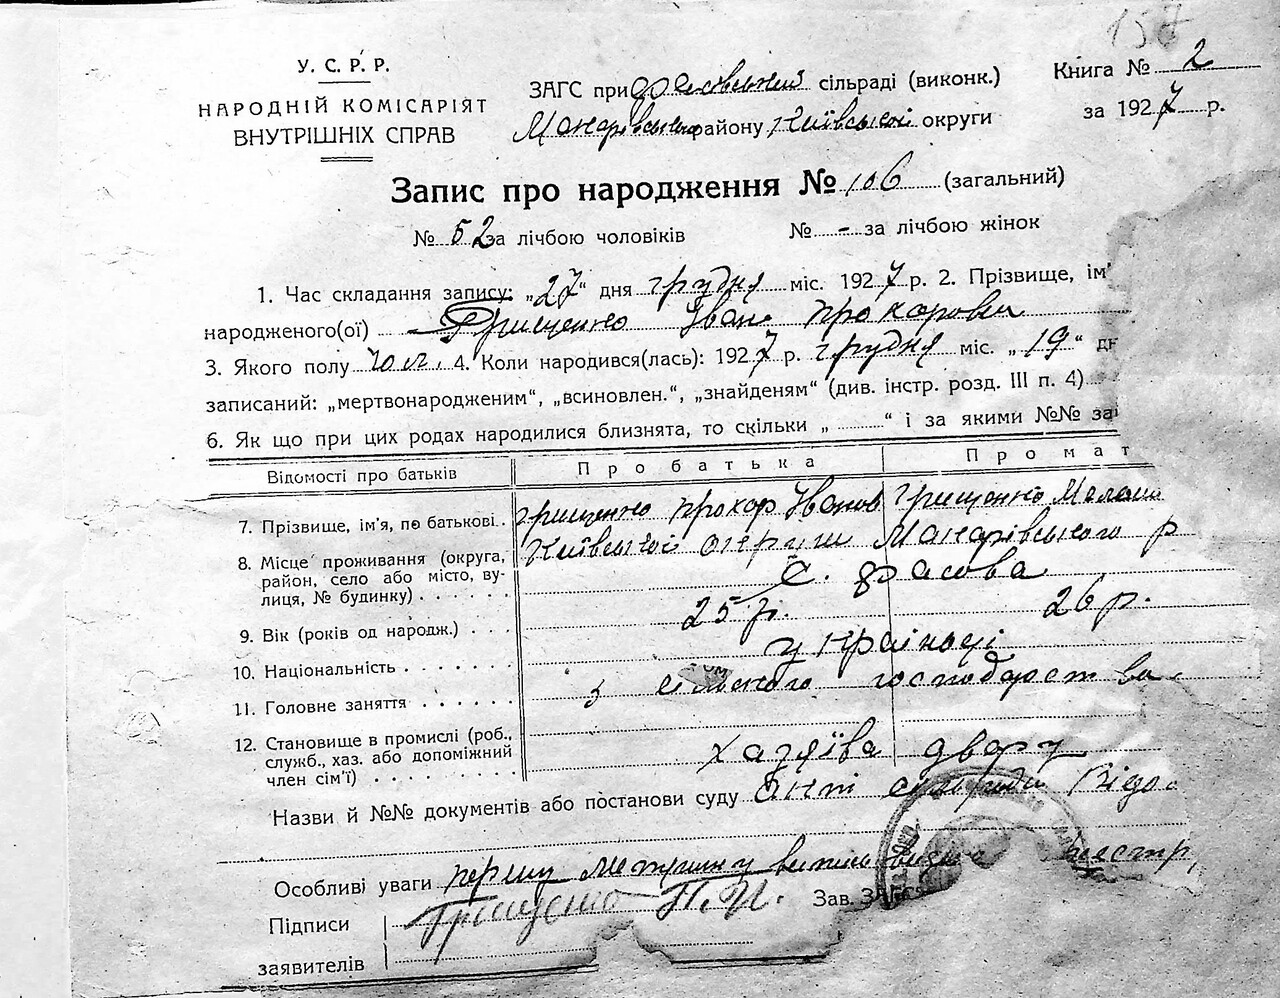 157
У. С. Р. Р.
НАРОДНІЙ КОМІСАРІЯТ
ВНУТРІШНІХ СПРАВ
ЗАГС при Фасовській сільраді (виконк.)
Макарівського району Київської округи
Книга № 2
за 1927 р.
Запис про народження № 106 (загальний)
№ 52 за лічбою чоловіків № - за лічбою жінок
1. Час складання запису: „27“ дня грудня міс. 1927 р. 2. Прізвище, ім'
народженого(ої) Грищенко Іван Прохорови
3. Якого полу чол. 4. Коли народився(лась): 1927 р. грудня міс. „19“ дн
записаний: „мертвонародженим“, „всиновлен.“, „знайденям“ (див. інстр. розд. III п. 4)
6. Як що при цих родах народилися близнята, то скільки „ “ і за якими №№ за
Відомості про батьків Про батька Про мат
7. Прізвище, ім'я, по батькові Грищенко Прохор Іванов Грищенко Мелані
8. Місце проживання (округа, Київської округи Макарівського р
район, село або місто, ву- с. Фасова
лиця, № будинку)
9. Вік (років од народж.) 25 р. 26 р.
10. Національність українці
11. Головне заняття з сільського господарства
12. Становище в промислі (роб., хазяїва двору
служб., хаз. або допоміжний
член сім'ї)
Назви й №№ документів або постанови суду Акт сільради
Особливі уваги першу метричну випись
Підписи Грищенко П. И. Зав. ЗАГС
заявителів